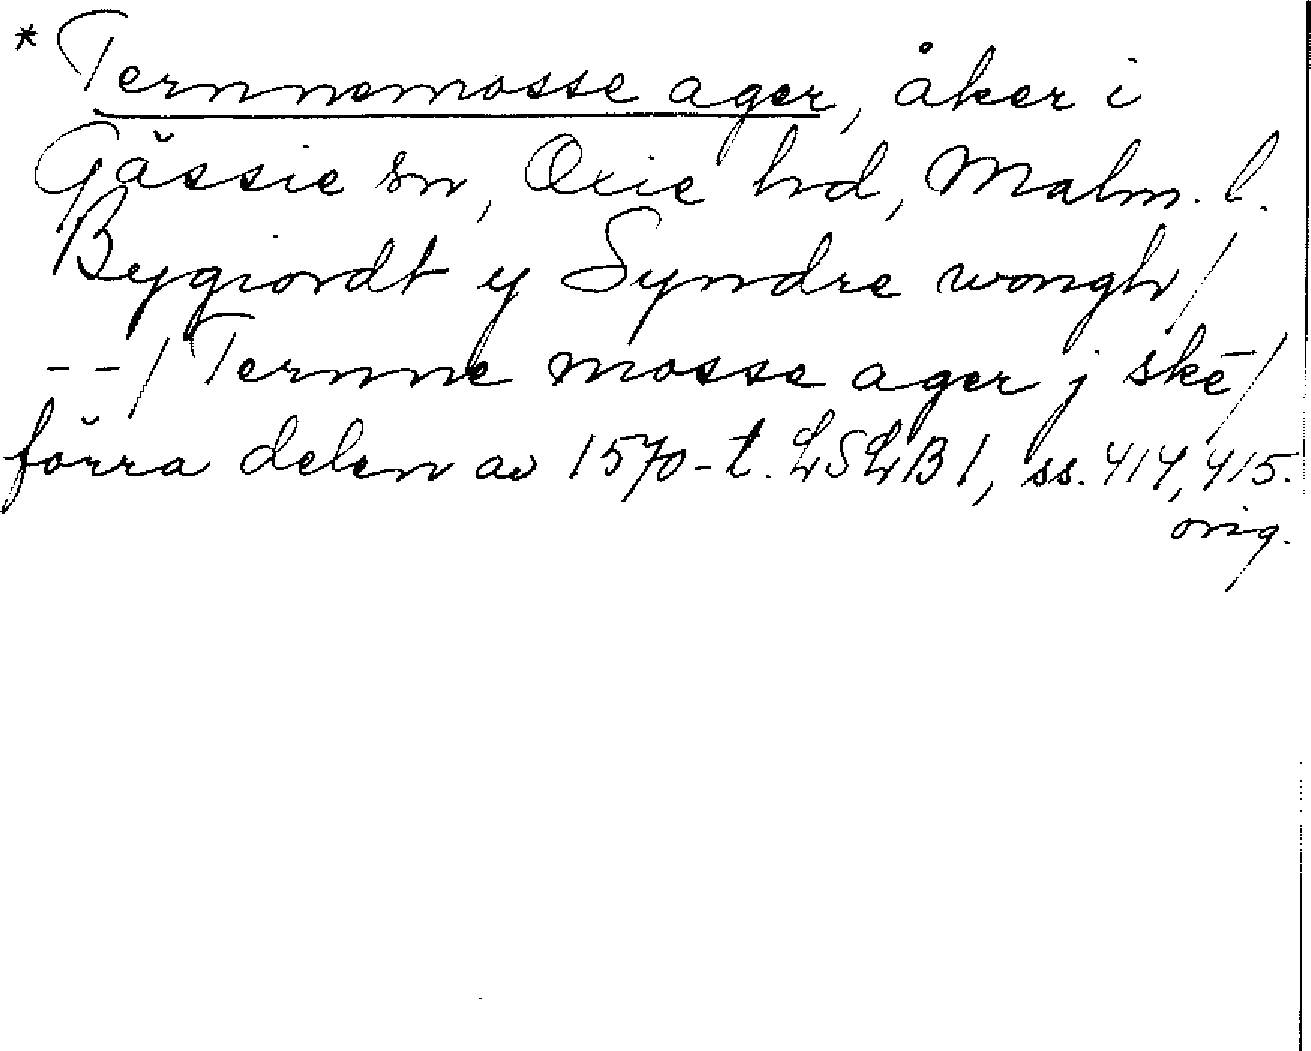 *Ternnemosse ager, åker i
Gässie sn, Oxie hd, Malm. l.
Bygiordt y Syndre wongh/
--/Ternne mosse ager j skē/
förra delen av 1570-t. LSLB 1, ss. 414, 415.
orig.